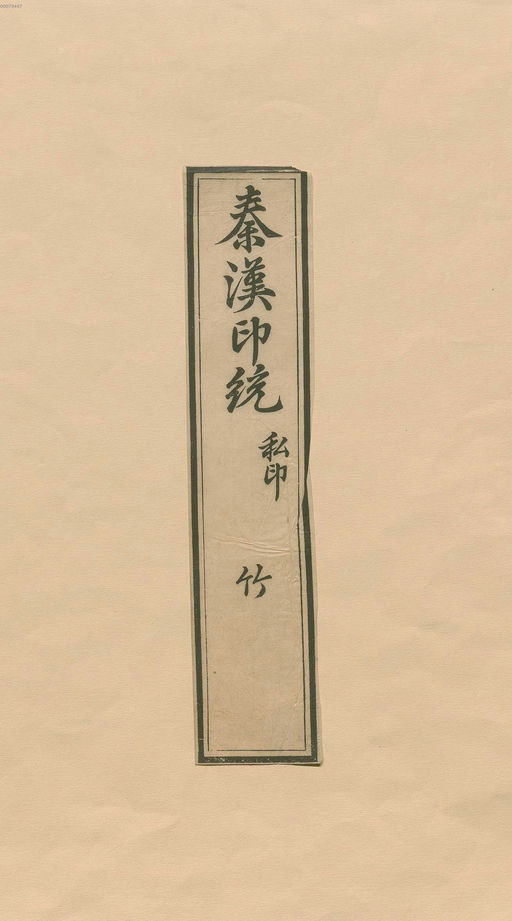 00073447
秦漢印統
私印
竹